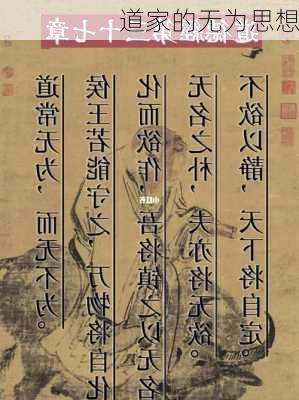 道家的无为思想
道德经第三十七章
道常无为，而无不为。
侯王若能守之，万物将自化
化而欲作，吾将镇之以无名
无名之朴，夫亦将无欲。
不欲以静，天下将自定。
小红书